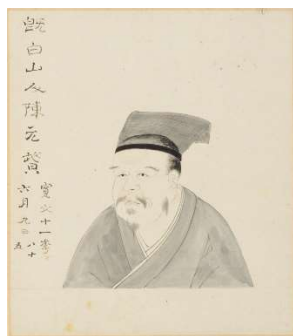 既白山人陳元贇
寛文十一辛亥
六月九日八十五